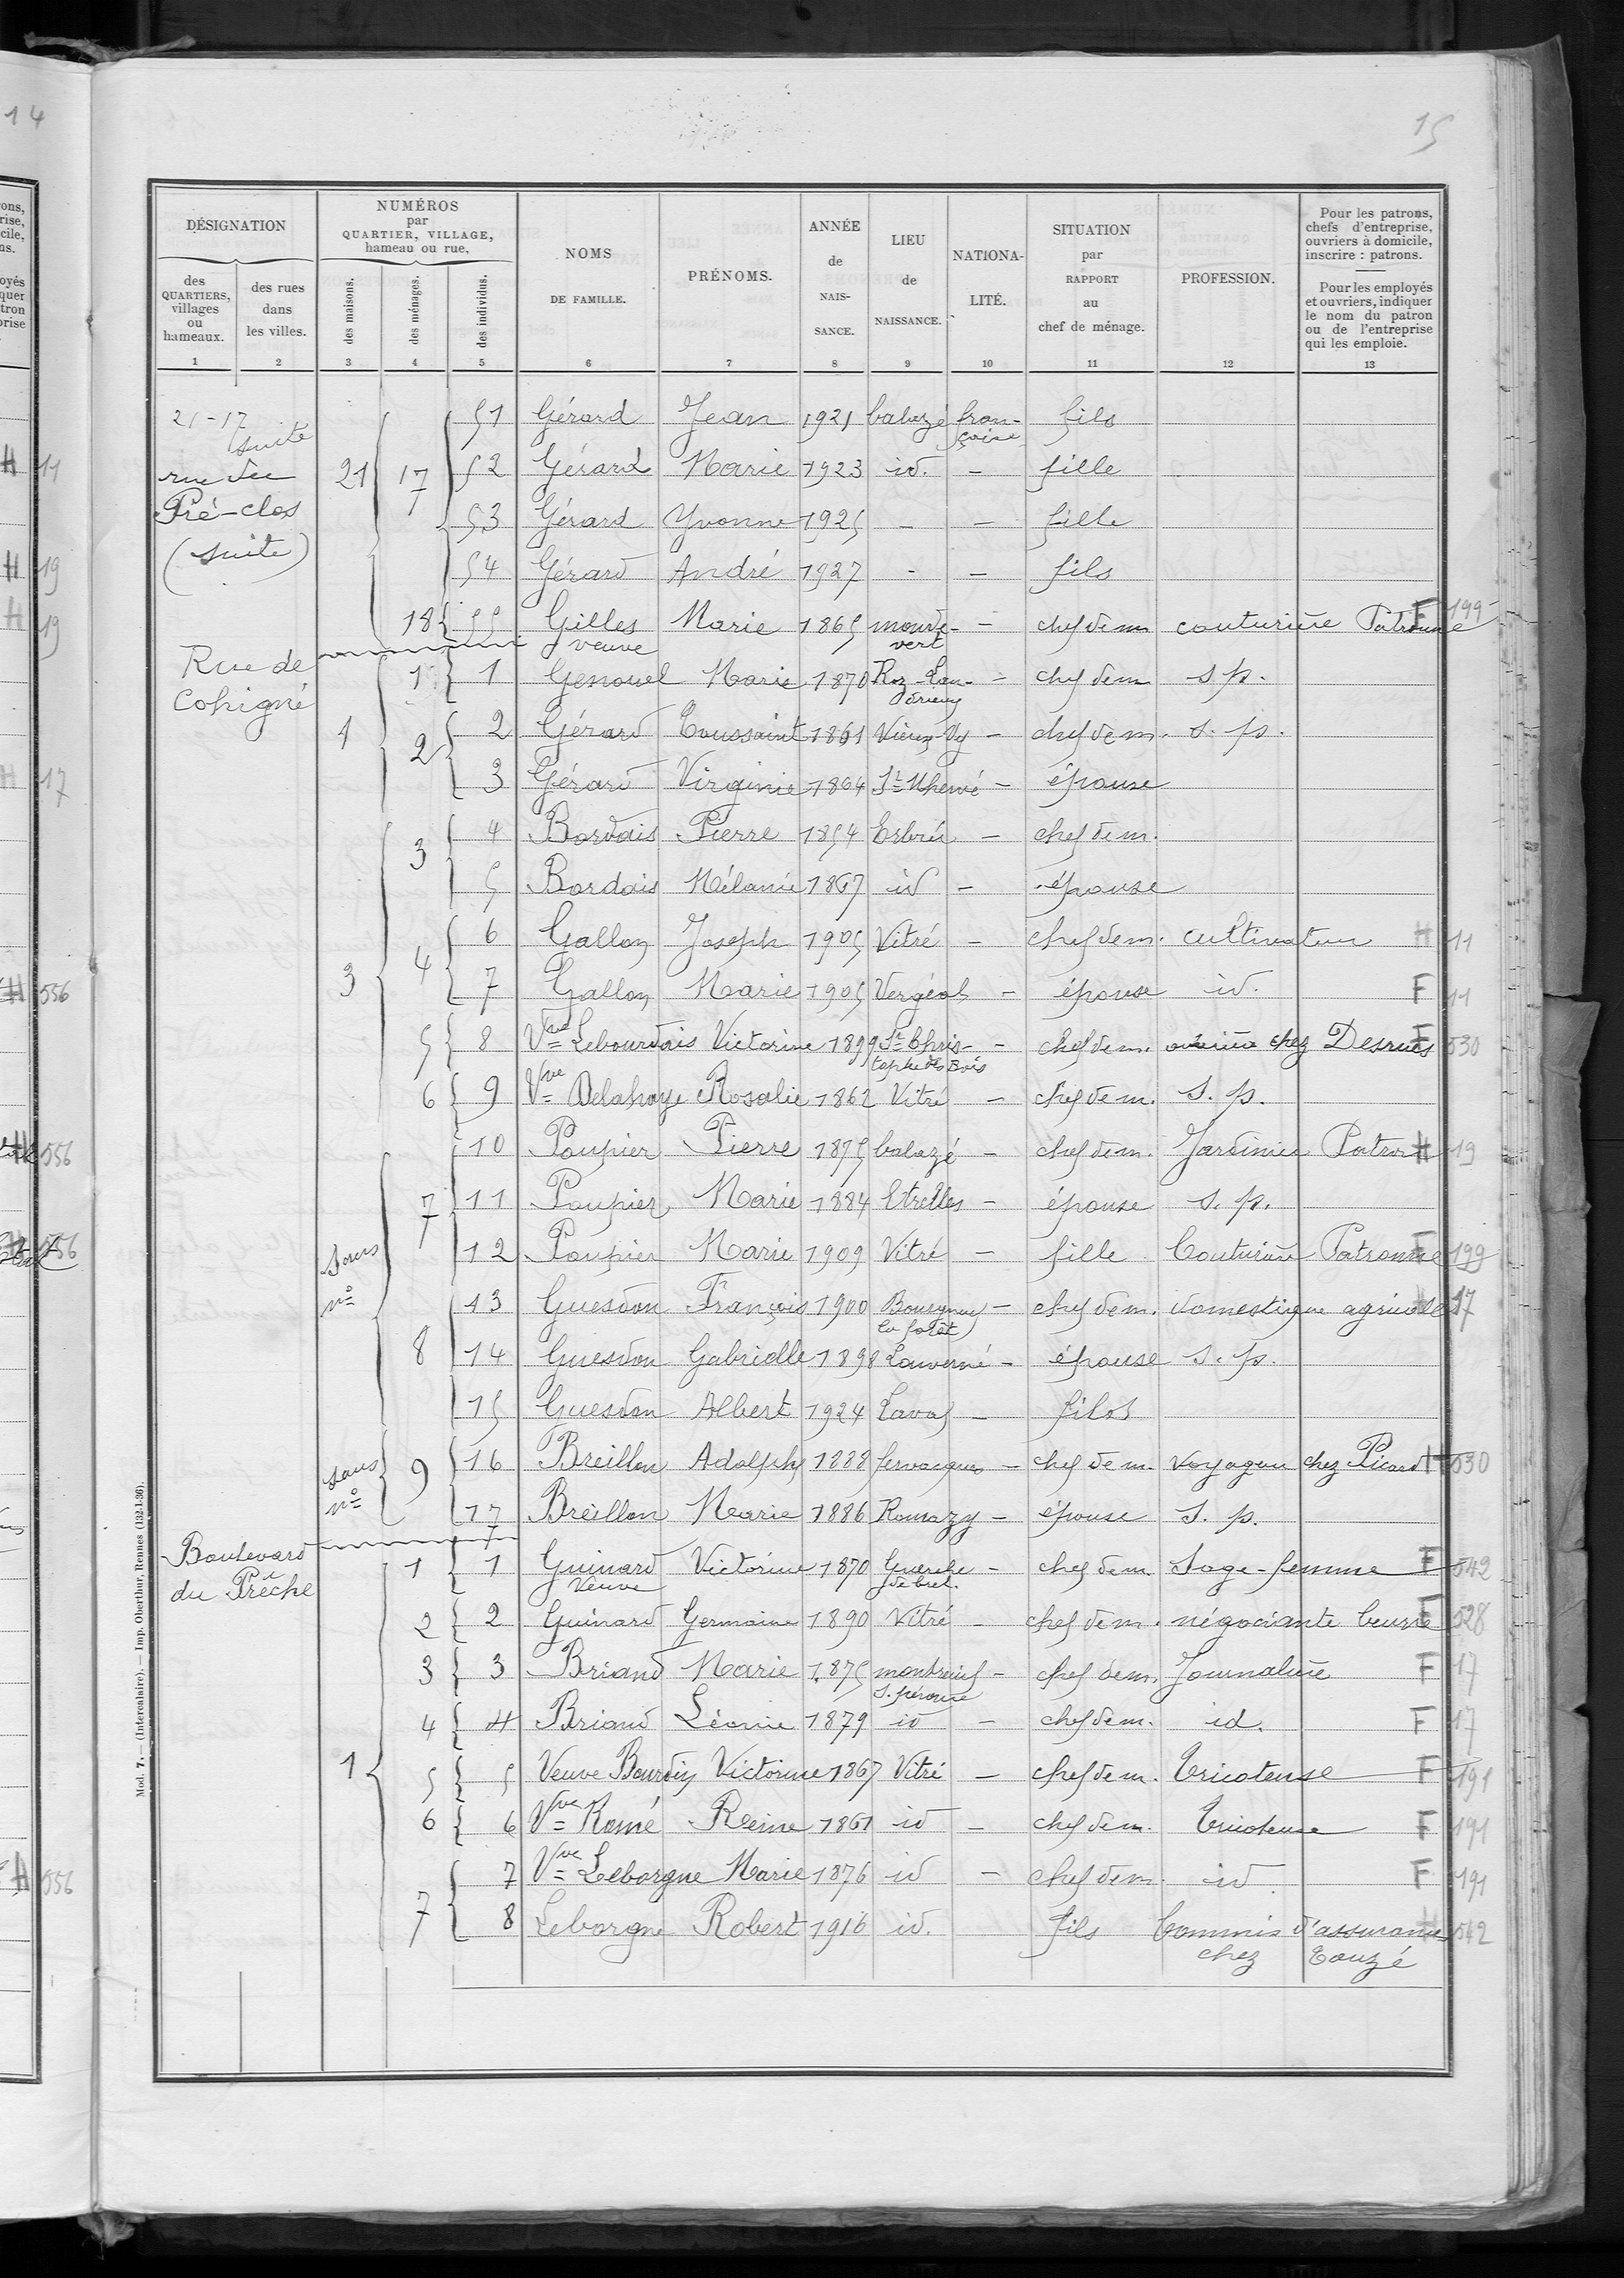 14
15
DÉSIGNATION
des QUARTIERS, villages ou hameaux.
des rues dans les villes.
NUMÉROS par QUARTIER, VILLAGE, hameau ou rue.
des maisons.
des ménages.
des individus.
NOMS DE FAMILLE.
PRÉNOMS.
ANNÉE de NAIS- SANCE.
LIEU de NAISSANCE.
NATIONA- LITÉ.
SITUATION par RAPPORT au chef de ménage.
PROFESSION.
Pour les patrons, chefs d'entreprise, ouvriers à domicile, inscrire : patrons.
Pour les employés et ouvriers, indiquer le nom du patron ou de l'entreprise qui les emploie.
1 2 3 4 5 6 7 8 9 10 11 12 13
21-17 suite
51 Gérard Jean 1921 balazé fran-çaise fils
rue du Pré-clos (suite)
21 17 52 Gérard Marie 1923 id. - fille
53 Gérard Yvonne 1925 - - fille
54 Gérard André 1927 - - fils
18 55 Gilles veuve Marie 1865 mondevert - chef de m couturière Patronne F 199
Rue de Cohigné
1 1 Genouel Marie 1870 Roz-Landrieux - chef de m s.p.
1 2 2 Gérard Toussaint 1861 Vieux Vy - chef de m. s.p.
3 Gérard Virginie 1864 St M'hervé - épouse
3 4 Bordais Pierre 1854 Erbrée - chef de m.
5 Bordais Mélanie 1867 id - épouse
3 4 6 Gallon Joseph 1905 Vitré - chef de m. cultivateur H 11
7 Gallon Marie 1905 Vergéal - épouse id. F 11
5 8 Vve Lebourdais Victorine 1899 St Christophe des Bois - chef de m. ouvrière chez Desrues F 530
6 9 Vve Delahaye Rosalie 1862 Vitré - chef de m. s.p.
10 Poupier Pierre 1875 balazé - chef de m. Jardinier Patron H 19
7 11 Poupier Marie 1884 Etrelles - épouse s.p.
12 Poupier Marie 1909 Vitré - fille Couturière Patronne F 199
sans n°
13 Guesdon François 1900 Bourgneuf la forêt - chef de m. domestique agricole 17
8 14 Guesdon Gabrielle 1898 Louverné - épouse s.p.
15 Guesdon Albert 1924 Laval - fils
sans n° 9 16 Breillon Adolphe 1888 - chef de m. voyageur chez Picard H 530
17 Breillon Marie 1886 Romazy - épouse s.p.
Boulevard du Prêche
1 1 Guinard Veuve Victorine 1870 Guerche de bret. - chef de m. Sage-femme F 542
2 2 Guinard Germaine 1890 Vitré - chef de m. négociante beurre F 528
3 3 Briand Marie 1875 montreuil s. pérouse - chef de m. Journalière F 17
4 4 Briand Léonie 1879 id - chef de m. id. F 17
1 5 5 Veuve Bourdin Victorine 1867 Vitré - chef de m. Tricoteuse F 191
6 6 Vve Romé Reine 1861 id - chef de m. Tricoteuse F 191
7 Vve Leborgne Marie 1876 id - chef de m. id F 191
7 8 Leborgne Robert 1916 id. fils Commis d'assurances chez Touzé H 542
Mod. 7. — (Intercalaire). — Imp. Oberthur, Rennes (132-1-36).